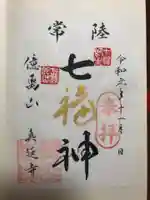 常陸
七福神
億萬山
真延寺
令和元年十一月 日
奉拝